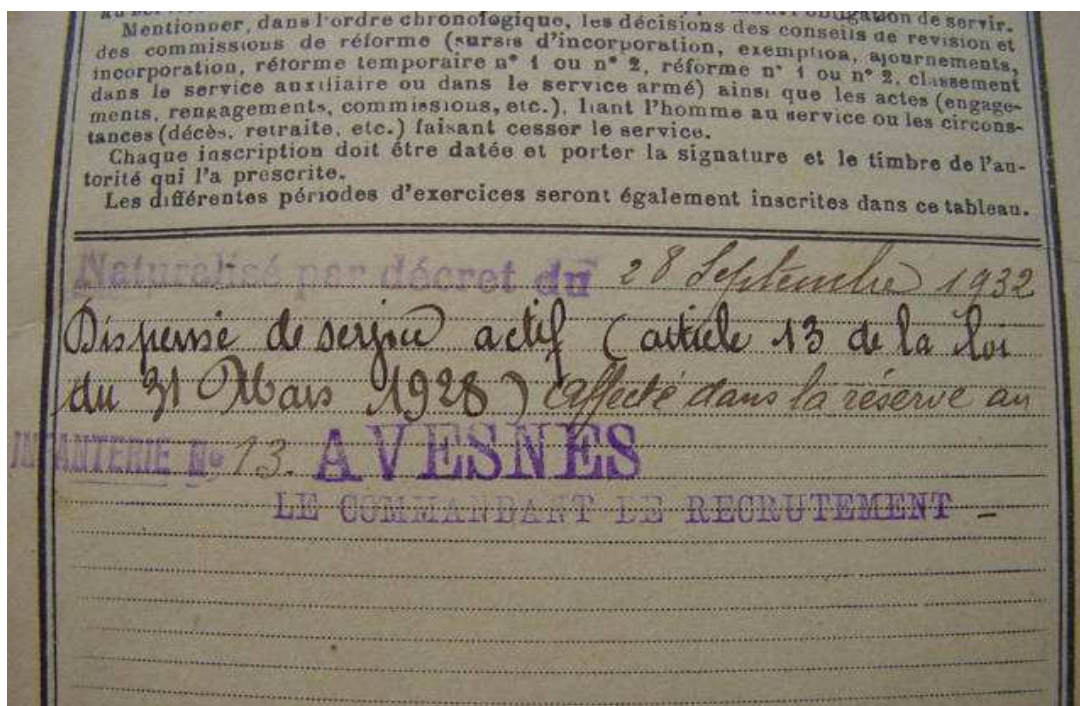 obligation de servir.
Mentionner, dans l'ordre chronologique, les décisions des conseils de revision et
des commissions de réforme (sursis d'incorporation, exemption, ajournements,
incorporation, réforme temporaire n° 1 ou n° 2, réforme n° 1 ou n° 2, classement
dans le service auxiliaire ou dans le service armé) ainsi que les actes (engage-
ments, rengagements, commissions, etc.), liant l'homme au service ou les circons-
tances (décès, retraite, etc.) faisant cesser le service.
Chaque inscription doit être datée et porter la signature et le timbre de l'au-
torité qui l'a prescrite.
Les différentes périodes d'exercices seront également inscrites dans ce tableau.
Naturalisé par décret du 28 Septembre 1932
Dispensé de service actif (article 13 de la loi
du 31 Mars 1928) affecté dans la réserve au
INFANTERIE No 13. AVESNES
LE COMMANDANT DE RECRUTEMENT -